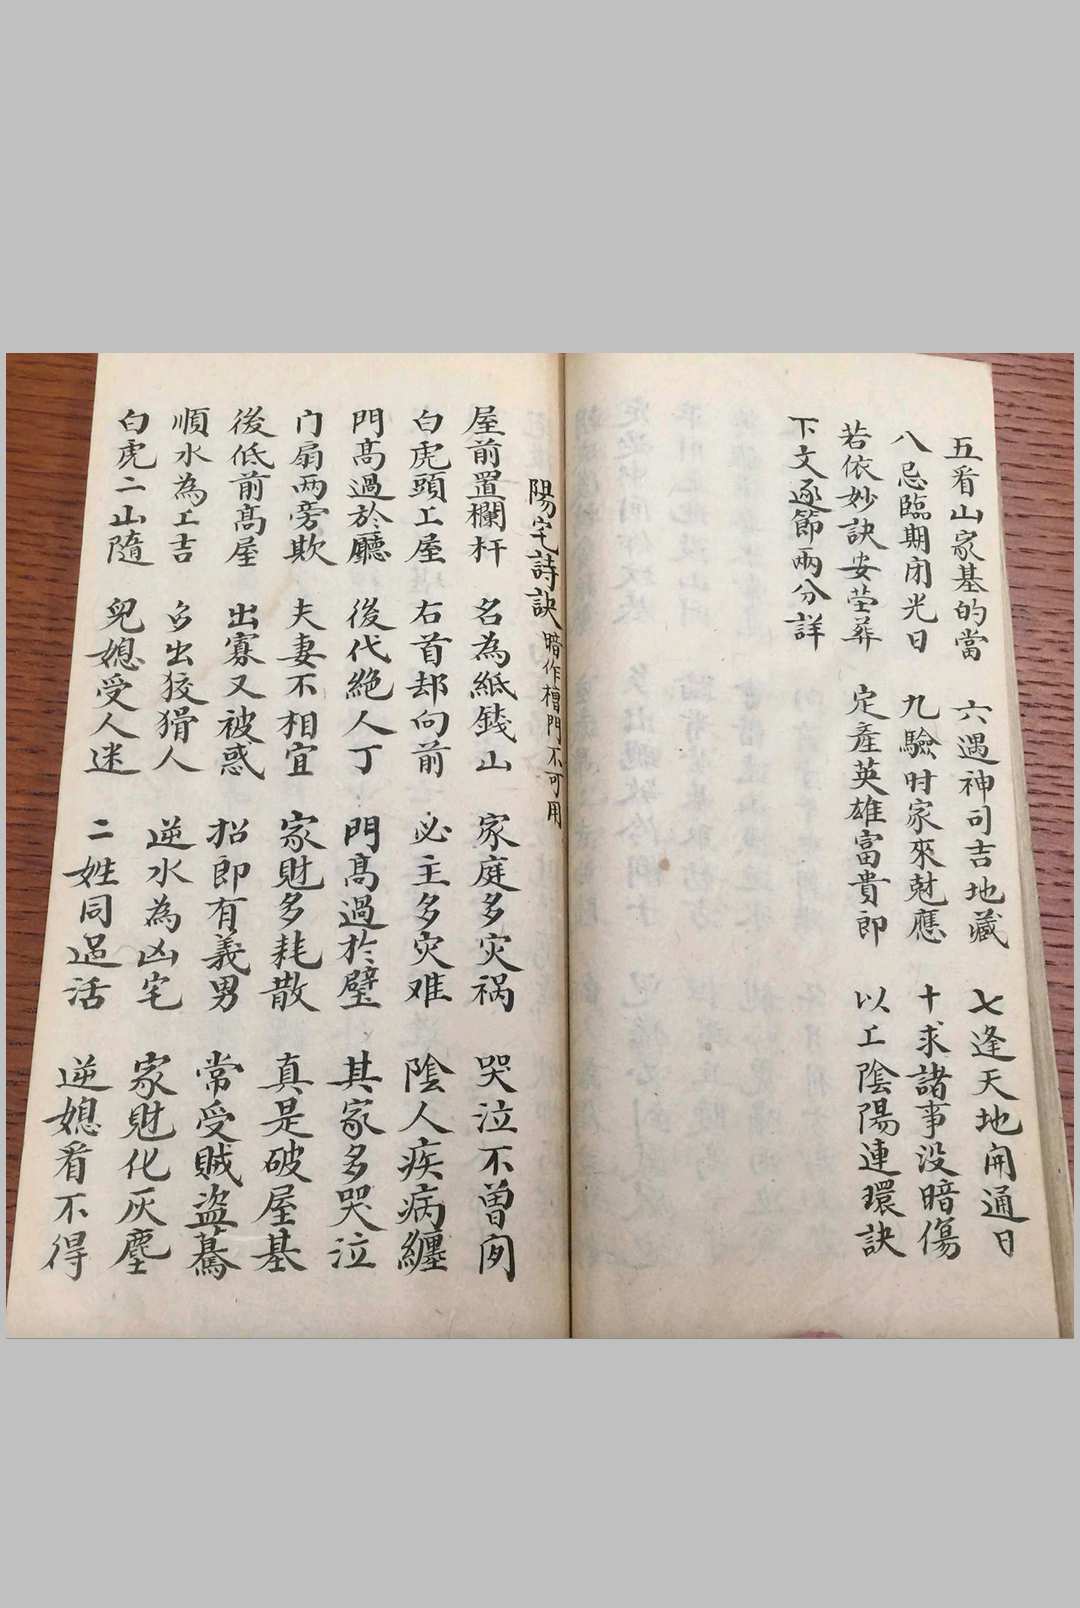 五看山家基的當　六遇神司吉地藏　七逢天地開通日
八忌臨期閉光日　九驗时家來尅應　十求諸事没暗傷
若依妙訣安茔葬　定產英雄富貴郎　以工陰陽連環訣
下文逐節兩分詳
陽宅詩訣 暗作檜門不可用
屋前置欄杆　名為紙錢山　家庭多灾祸　哭泣不曾闲
白虎頭工屋　右首却向前　必主多灾难　陰人疾病纏
門高過於廳　後代絶人丁　門高過於壁　其家多哭泣
门扇两旁欺　夫妻不相宜　家財多耗散　真是破屋基
後低前高屋　出寡又被惑　招郎有義男　常受贼盗驀
順水為工吉　多出狡猾人　逆水為凶宅　家財化灰塵
白虎二山隨　兒媳受人迷　二姓同过活　逆媳看不得